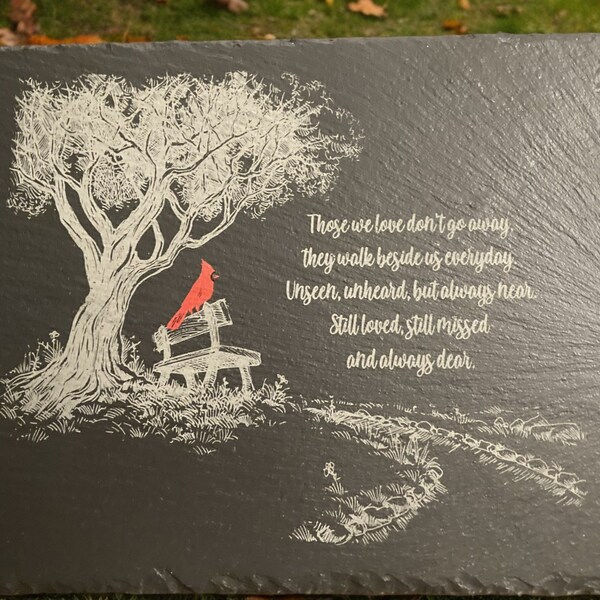 Those we love don't go away,
they walk beside us everyday.
Unseen, unheard, but always near.
Still loved, still missed
and always dear.